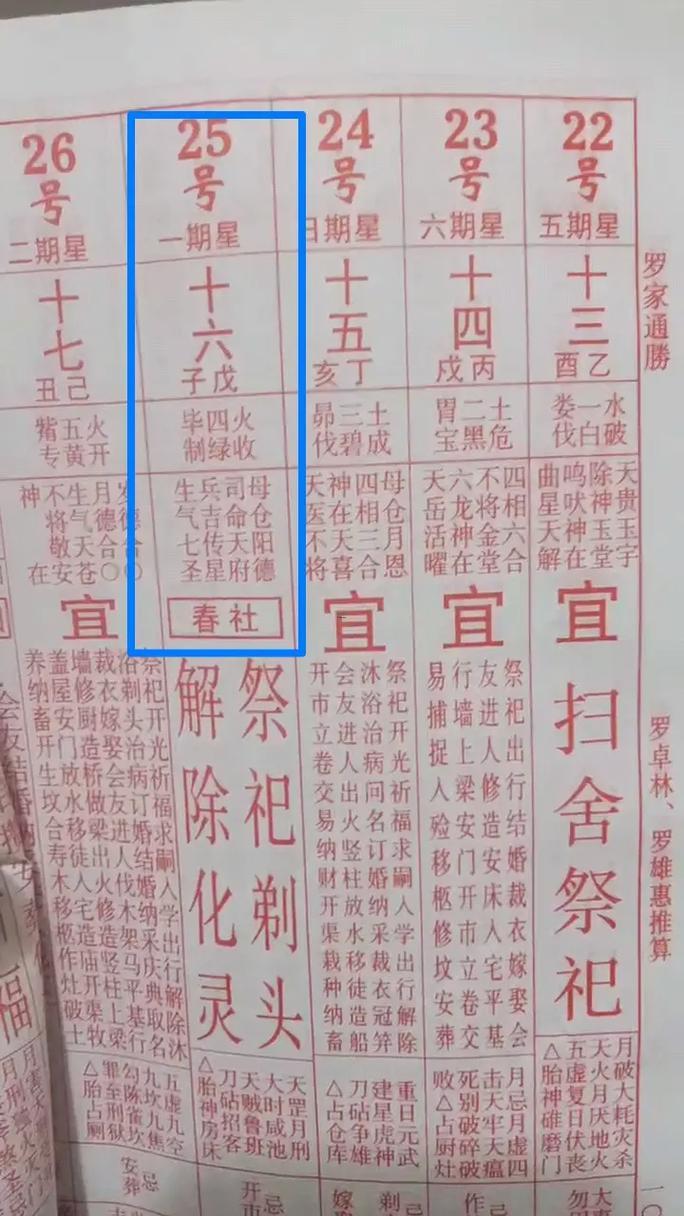 罗家通勝
罗卓林、罗雄惠推算
22
号
星期五
十三
乙酉
水破
一白
娄伐
天贵玉宇
除神玉堂
鸣吠神在
曲星天解
宜
扫舍祭祀
月破大耗灾杀
天火月厌地火
五虚复日伏丧
△胎神碓磨门
23
号
星期六
十四
丙戌
土危
二黑
胃宝
四相六合
不将金堂
六龙神在
天岳活曜
宜
祭祀出行结婚裁衣嫁娶会
友进人修造安床入宅平基
行墙上梁安门开市立卷交
易捕捉入殓移柩修坟安葬
月忌月虚四
击天牢天瘟
死别破碎破
败△占厨灶
忌
24
号
星期日
十五
丁亥
土成
三碧
昴伐
母仓月恩
四相三合
神在天喜
天医不将
宜
祭祀开光祈福求嗣入学出行解除
沐浴治病问名订婚纳采裁衣冠笄
会友进人出火竖柱放水移徙造船
开市立卷交易纳财开渠栽种纳畜
重日元武
建星虎神
刀砧争雄
△占仓库
忌
25
号
星期一
十六
戊子
火收
四绿
毕制
母仓阳德
司命天府
兵吉传星
生气七圣
春社
祭祀剃头
解除化灵
天罡月刑
大时咸池
天贼鲁班
刀砧招客
△胎神房床
忌
开市
26
号
星期二
十七
己丑
火开
五黄
觜专
岁德合〇
月德合〇
生气天苍
不将敬安
神在
宜
祭祀开光祈福求嗣入学出行解除沐
浴剃头治病订婚结婚纳采庆典取名
裁衣嫁娶会友进人伐木架马平基行
墙修厨造桥做梁出火修造竖柱上梁
盖屋安门放水移徙入宅造庙开渠牧
养纳畜开生坟合寿木移柩作灶破土
五虚九空
九坎九焦
勾陈雀坎
罪至刑狱
△胎占厕
忌
安葬